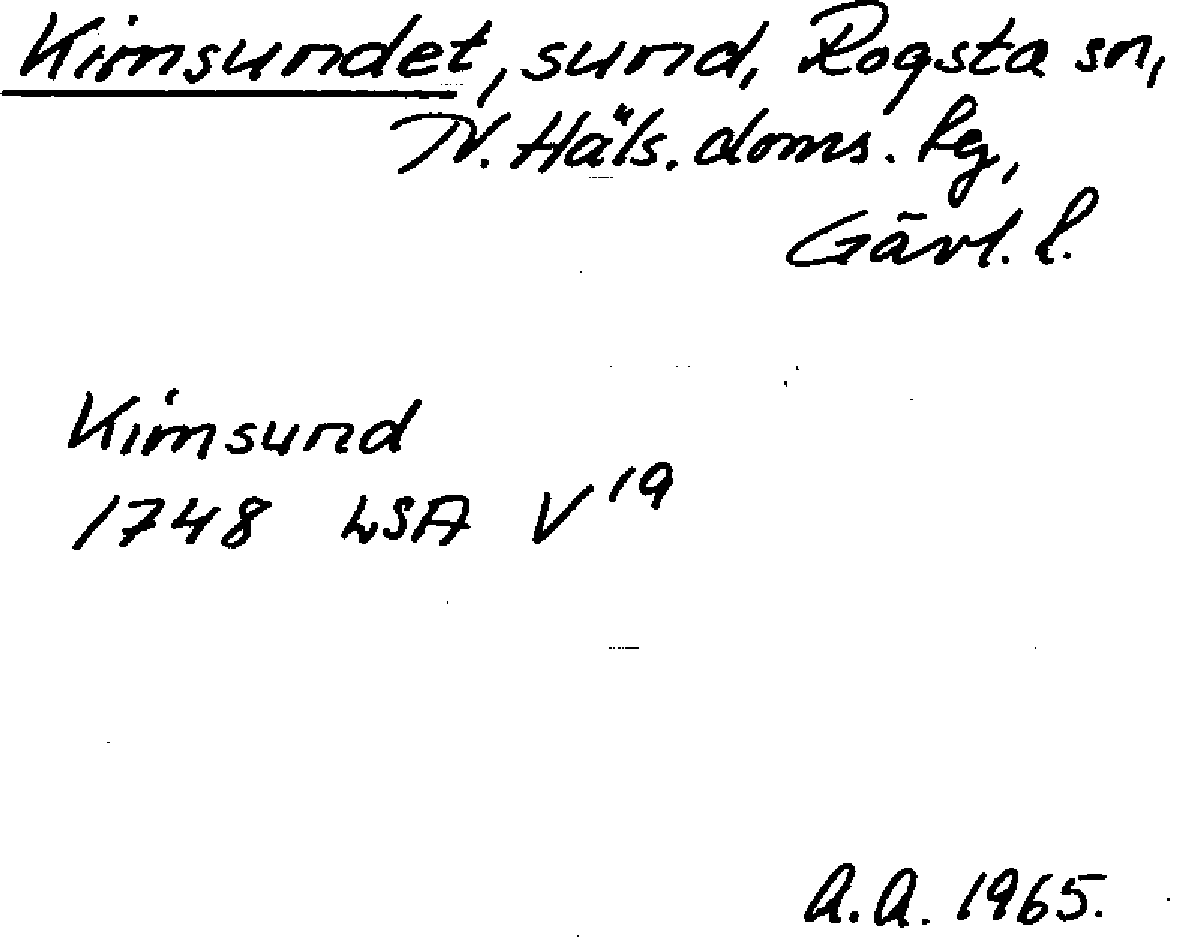 Kimsundet, sund, Rogsta sn,
N. Häls. doms. lg,
Gävl. l.
Kimsund
1748 LSA V 19
A.A. 1965.